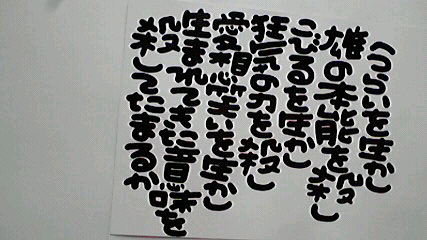 へつらいを生かし
雄の本能を殺し
こびるを生かし
狂気の力を殺し
愛想笑を生かし
生まれてきた意味を
殺してたまるか